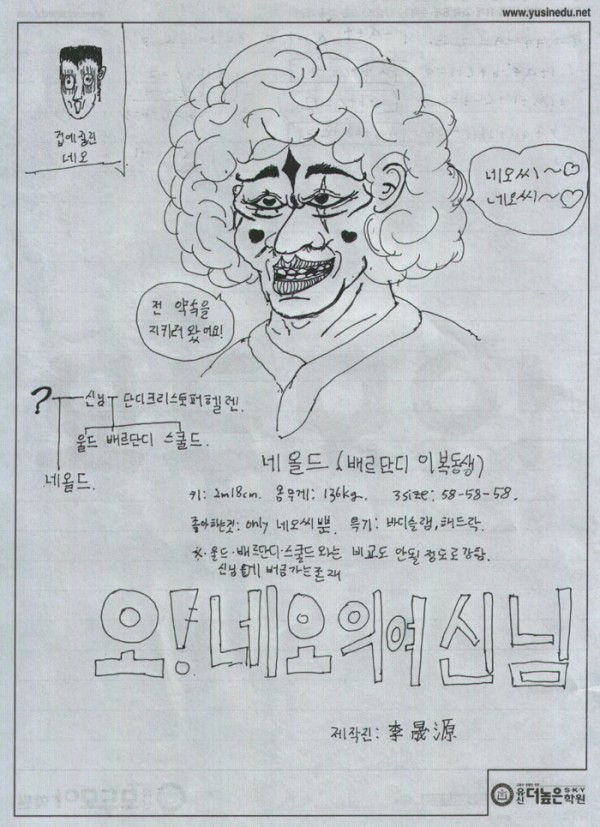 www.yusinedu.net
겁에 질린
네오
네오씨~♡
네오씨~♡
전 약속을
지키러 왔어요!
? 신님 단디크리스토퍼헬렌.
울드 배르단디 스쿨드.
네올드.
네올드 (배르단디 이복동생)
키: 2m18cm. 몸무게: 136kg. 3size: 58-58-58.
좋아하는것: only 네오씨뿐. 특기: 바디슬램, 해드락.
※·울드·배르단디·스쿨드와는 비교도 안될 정도로 강함.
신님에게 버금가는 존재
오! 네오의 여신님
제작진: 李晟源
유신 더높은 SKY 학원